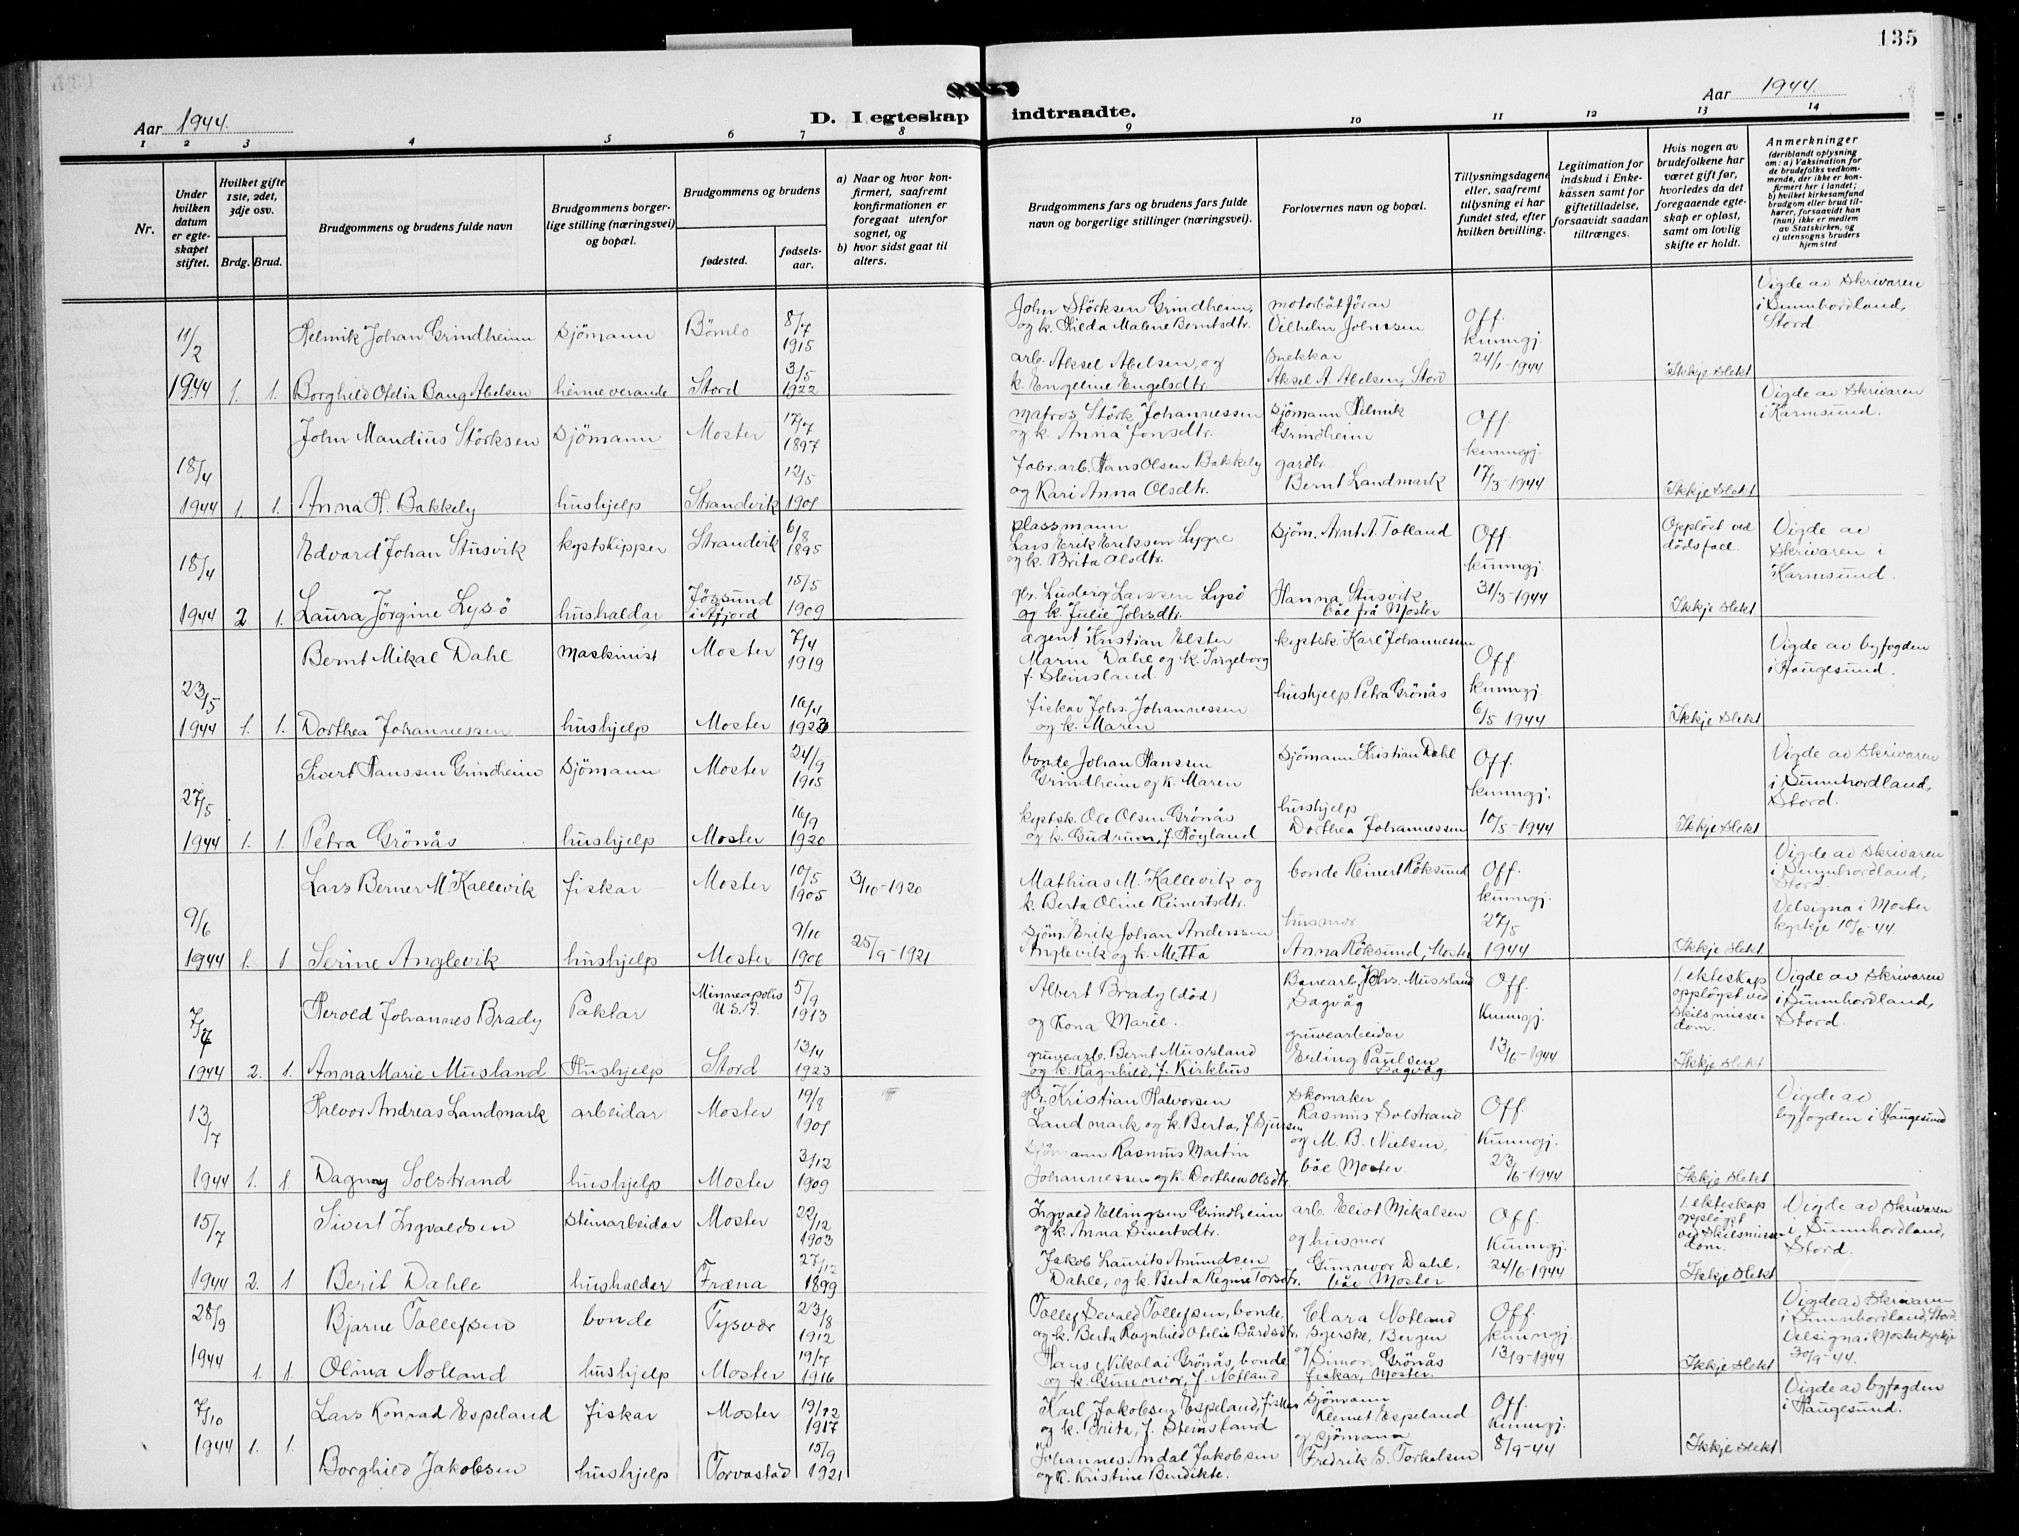 135
Aar 1944.
D. I egteskap indtraadte.
Aar 1944
1 2 3 4 5 6 7 8 9 10 11 12 13 14
Nr.
Under hvilken datum er egteskapet stiftet.
Hvilket gifte 1ste, 2det, 3dje osv.
Brdg. Brud.
Brudgommens og brudens fulde navn
Brudgommens borgerlige stilling (næringsvei) og bopæl.
Brudgommens og brudens
fødested.
fødselsaar.
a) Naar og hvor konfirmert, saafremt konfirmationen er foregaat utenfor sognet, og
b) hvor sidst gaat til alters.
Brudgommens fars og brudens fars fulde navn og borgerlige stillinger (næringsvei).
Forlovernes navn og bopæl.
Tillysningsdagene eller, saafremt tillysning ei har fundet sted, efter hvilken bevilling.
Legitimation for indskud i Enkekassen samt for giftetilladelse, forsaavidt saadan tiltrænges.
Hvis nogen av brudefolkene har været gift før, hvorledes da det foregaaende egteskap er opløst, samt om lovlig skifte er holdt.
Anmerkninger
(deriblandt oplysning om: a) Vaksination for de brudefolks vedkommende, der ikke er konfirmert her i landet; b) hvilket kirkesamfund brudgom eller brud tilhører, forsaavidt han (hun) ikke er medlem av Statskirken, og c) utensogns bruders hjemsted
11/2 Helmik Johan Grindheim sjömann Bömlo 8/7 1915 John Störksen Grindheim, og k. Hilda Malene Berntsdtr. motorbåtförar Vilhelm Johnsen Off. kunngj. 24/1-1944 Vigde av skrivaren i Sunnhordland, Stord
1944 1. 1. Borghild Ofelia Bang Abelsen heimeverande Stord 3/5 1922 arb. Aksel Abelsen, og k. Engeline Engelsdtr. snekkar Aksel A. Abelsen, Stord Ikkje slekt
18/4 John Mandius Störksen sjömann Moster 17/7 1897 matros Störk Johannessen og k. Anna Jonsdtr. sjömann Helmik Grindheim Off. kunngj. 17/3-1944 Vigde av skrivaren i Karmsund.
1944 1. 1. Anna H. Bakkely hushjelp Strandvik 12/5 1901 fabr.arb. Hans Olsen Bakkely og Kari Anna Olsdtr. gardbr. Bernt Landmark Ikkje slekt
18/4 Edvard Johan Stusvik kystskipper Strandvik 6/8 1895 plassmann Lars Erik Eriksen Lygre og k. Brita Olsdtr. sjöm. Arnt A. Totland Off. kunngj. 31/3-1944 Opplöst ved dödsfall. Vigde av skrivaren i Karmsund.
1944 2 1. Laura Jörgine Lysö hushaldar Jössund i Åfjord 15/5 1909 gbr. Ludvig Larssen Lysö og k. Julie Johsdtr. Hanna Stusvik båe frå Moster Ikkje slekt
23/5 Bernt Mikal Dahl Maskinist Moster 7/4 1919 agent Kristian Elster Marin Dahl og k. Ingeborg f. Steinsland. kystsk. Karl Johannessen Off kunngj. 6/5 1944 Vigde av byfogden i Haugesund.
1944 1. 1. Dorthea Johannessen hushjelp Moster 16/4 1923 fiskar Johs. Johannessen og k. Maren hushjelp Petra Grönås Ikkje slekt
27/5 Sivert Hanssen Grindheim sjömann Moster 24/9 1915 bonde Johan Hanssen Grindheim og k. Maren sjömann Kristian Dahl Off. kunngj. 10/5-1944 Vigde av skrivaren i Sunnhordland, Stord.
1944 1. 1. Petra Grönås hushjelp Moster 16/9 1920 kystsk. Ole Olsen Grönås og k. Gudrun, f. Högland hushjelp Dorthea Johannessen Ikkje slekt
9/6 Lars Berner M. Kallevik fiskar Moster 10/5 1905 3/10-1920 Mathias M. Kallevik og k. Berta Oline Reinertsdtr. bonde Reinert Röksund Off. kunngj. 27/5 1944 Vigde av skrivaren i Sunnhordland, Stord. Velsigna i Moster kyrkje 10/6-44.
1944 1. 1 Serine Anglevik hushjelp Moster 9/10 1906 25/9-1921 sjöm. Erik Johan Anderssen Anglevik og k. Metta husmor Anna Röksund, Moster Ikkje slekt
7/7 Herold Johannes Brady Pakkar Minneapolis U.S.A. 5/9 1913 Albert Brady (död) og Kona Marie. Banearb. Johs. Mussland Sagvåg Off. Kunngj. 13/6-1944 1. ekteskap opplöyst ved skilsmissedom. Vigde av skrivaren i Sunnhordland, Stord.
1944 2. 1. Anna Marie Musland Hushjelp Stord 13/4 1923 gruvearb. Bernt Mussland og k. Ragnhild, f. Kirkhus gruvearbeidar Erling Paulsen Sagvåg Ikkje slekt
13/7 Halvor Andreas Landmark arbeidar Moster 19/8 1901 gbr. Kristian Halvorsen Landmark og k. Berta, f. skomaker Rasmus Solstrand og M. B. Nielsen, båe Moster. Off. Kunngj. 23/6-1944 Vigde av byfogden i Haugesund
1944 1. 1. Dagny Solstrand hushjelp Moster 3/12 1909 sjömann Rasmus Martin Johannessen og k. Dorthea Olsdtr. Ikkje slekt
15/7 Sivert Ingvaldsen steinarbeidar Moster 22/12 1903 Ingvald Ellingsen Grindheim og k. Anna Sivertsdtr. arb. Eliot Mikalsen og husmor Off. Kunngj. 24/6-1944 1. ekteskap opplöyst ved skilsmissedom. Vigde av skrivaren i Sunnhordland, Stord.
1944 2. 1 Berit Dahle hushaldar Fræna 27/12 1899 Jakob Laurits Amundsen Dahle, og k. Berta Regine Torsdtr. Gunnvor Dahl, båe Moster Ikkje slekt
28/9 Bjarne Tollefsen bonde Tysvær 23/8 1912 Tollef Sevald Tollefsen, bonde, og k. Berta Ragnhild Otelie Bårdsdtr. Clara Notland Syerske, Bergen Off. kunngj. 13/9-1944 Vigde av skrivaren i Sunnhordland, Stord. Velsigna i Moster kyrkje 30/9-44.
1944 1. 1. Olina Notland hushjelp Moster 19/7 1916 Hans Nikolai Grönås, bonde og k. Gunnvor, f. Notland og Simon Grönås fiskar, Moster. Ikkje slekt
7/10 Lars Konrad Espeland fiskar Moster 19/12 1917 Karl Jakobsen Espeland, fisker og k. Brita, f. Steinsland sjömann Klemet Espeland Off. Kunngj. 8/9-44 Vigde av byfogden i Haugesund.
1944 1. 1. Borghild Jakobsen hushjelp Torvastad 15/9 1921 Johannes Andal Jakobsen og k. Kristine Bendikte. og sjömann Fredrik S. Torkelsen Ikkje slekt